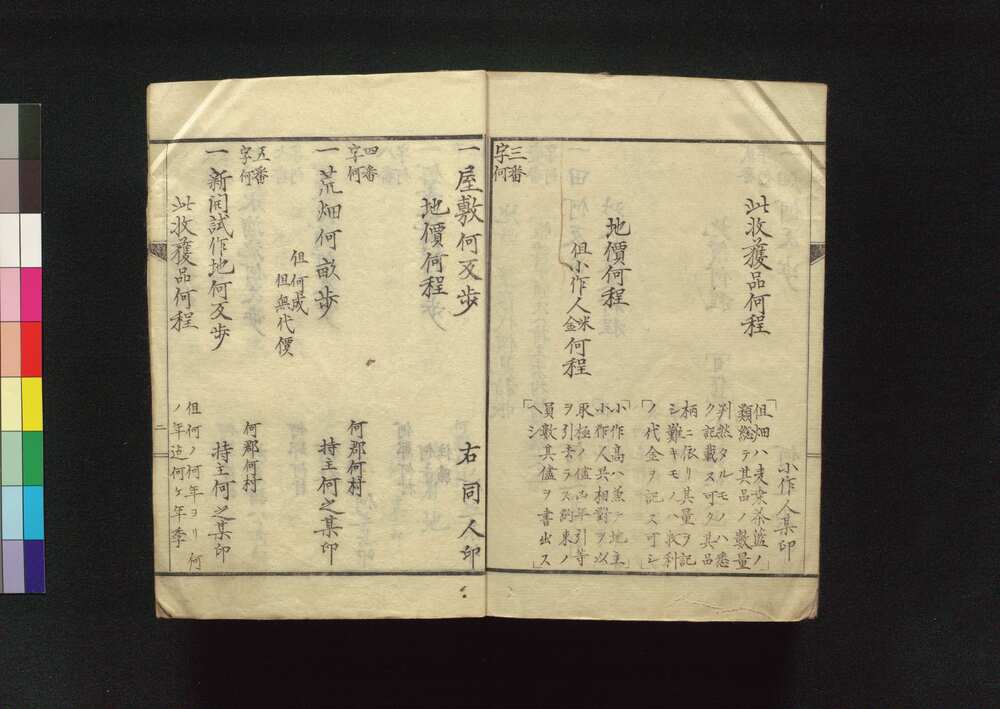 此收獲品何程
小作人某印
「但畑ハ麦桑茶藍ノ
類總テ其品ノ數量
判然タルモノハ悉
ク記載ス可ク其品
柄ニ依リ其量ヲ記
シ難キモノハ收利
ノ代金ヲ記ス可シ」
地價何程
但小作人米金何程
「小作高ハ兼テ地主
小作人共相對ヲ以
取極メ値凶年引等
ヲ引去ラス約束ノ
員數其儘ヲ書出ス
ヘシ」
三番
字何
一屋敷何反歩
右同人印
地價何程
四番
字何
一荒畑何畝歩
何郡何村
持主何之某印
但何成
但無代價
五番
字何
一新開試作地何反歩
何郡何村
持主何之某印
此收獲品何程
但何ノ何年ヨリ何
ノ年迄何ケ年季
二